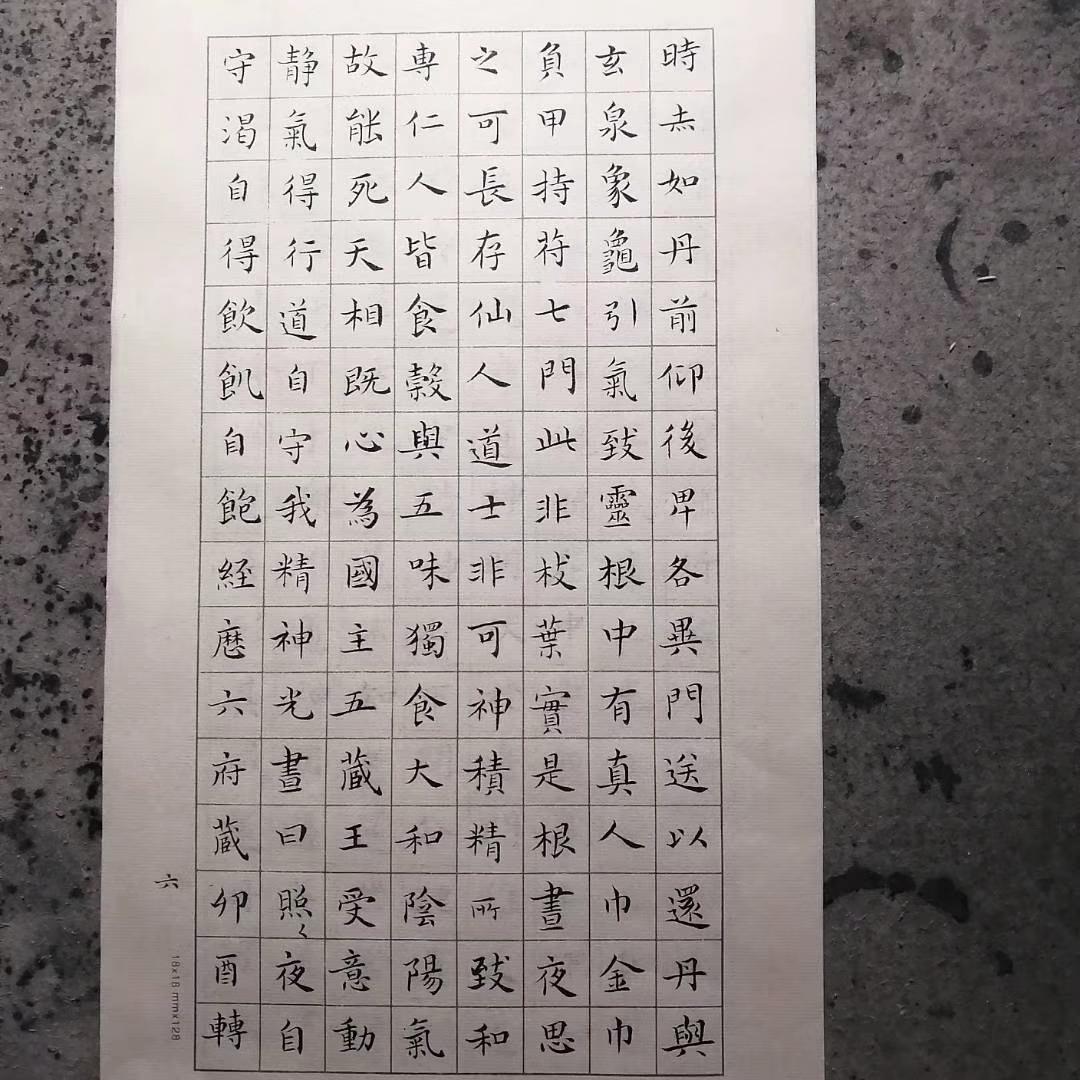 時赤如丹前仰後卑各異門送以還丹與
玄泉象龜引氣致靈根中有真人巾金巾
負甲持符七門此非枝葉實是根晝夜思
之可長存仙人道士非可神積精所致和
専仁人皆食穀與五味獨食大和陰陽氣
故能死天相既心為國主五藏王受意動
静氣得行道自守我精神光晝日照々夜自
守渴自得飲飢自飽経歷六府藏卯酉轉
六
18x18 mm×128